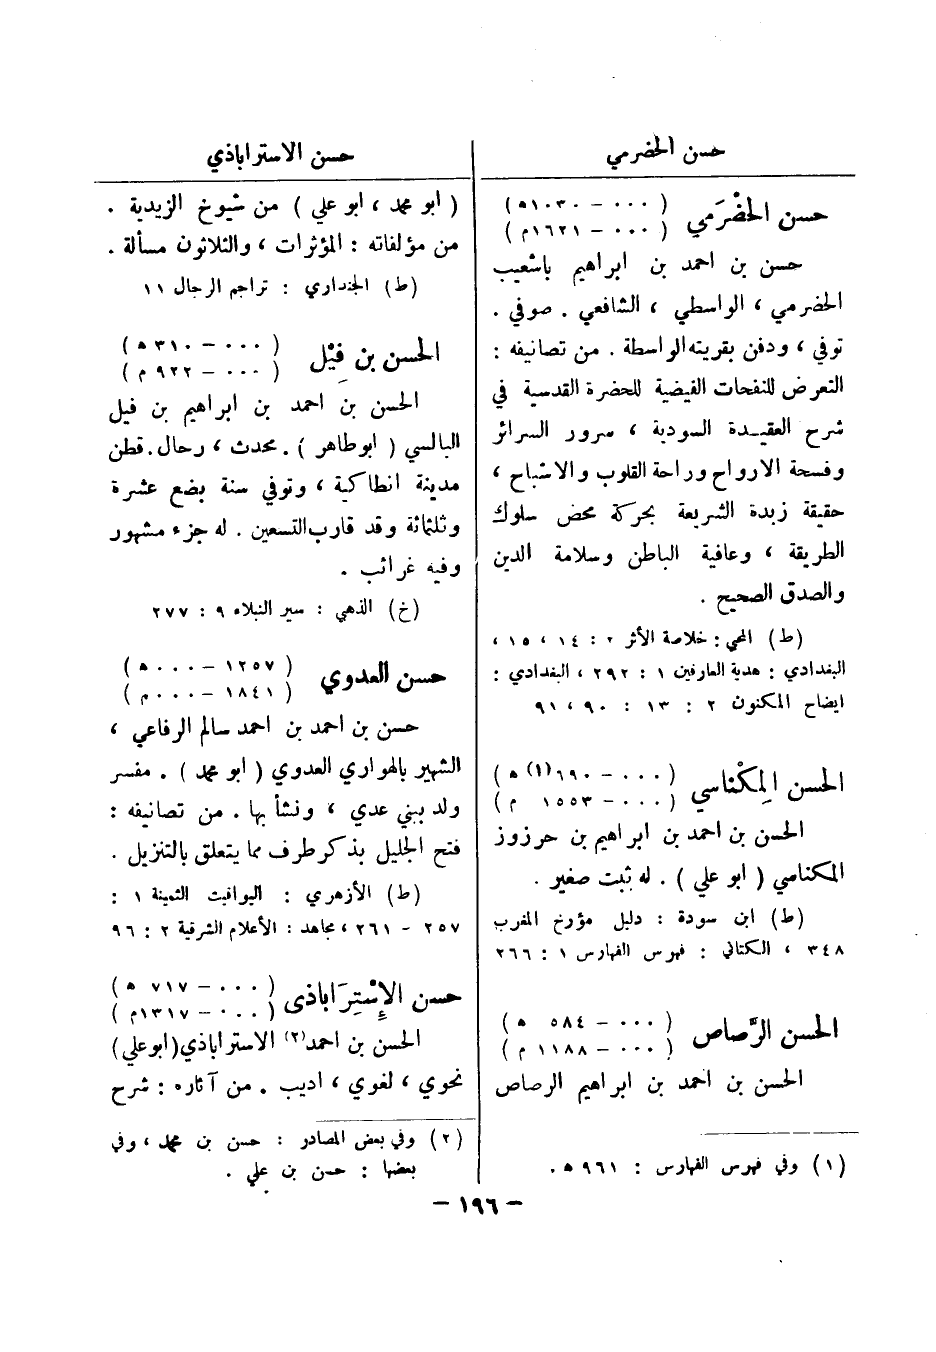 حسن الحضرمي
حسن الحضْرَمي ( ٠٠٠ – ١٠٣٠ه )
( ٠٠٠ – ١٦٢١م )
حسن بن احمد بن ابراهيم باشعيب
الحضرمي ، الواسطي ، الشافعي . صوفي .
توفي ، ودفن بقريته الواسطة . من تصانيفه :
التعرض للنفحات الفيضية للحضرة القدسية في
شرح العقيدة السودية ، سرور السرائر
وفسحة الارواح وراحة القلوب والاشباح ،
حقيقة زبدة الشريعة بحركة محض سلوك
الطريقة ، وعافية الباطن وسلامة الدين
والصدق الصحيح .
(ط) المحبي : خلاصة الأثر ٢ : ١٤ ، ١٥ ،
البغدادي : هدية العارفين ١ : ٢٩٢ ، البغدادي :
ايضاح المكنون ٢ : ١٣ : ٩٠ ، ٩١
الحسن المِكْناسي ( ٠٠٠ – ٦٩٠(١) ه )
( ٠٠٠ – ١٥٥٣ م )
الحسن بن احمد بن ابراهيم بن حرزوز
المكناسي ( ابو علي ) . له ثبت صغير .
(ط) ابن سودة : دليل مؤرخ المغرب
٣٤٨ ، الكتاني : فهرس الفهارس ١ : ٢٦٦
الحسن الرَّصاص ( ٠٠٠ – ٥٨٤ ه )
( ٠٠٠ – ١١٨٨ م )
الحسن بن احمد بن ابراهيم الرصاص
(١) وفي فهرس الفهارس : ٩٦١ ه .
حسن الاستراباذي
( ابو محمد ، ابو علي ) من شيوخ الزيدية .
من مؤلفاته : المؤثرات ، والثلاثون مسألة .
(ط) الجنداري : تراجم الرجال ١١
الحسن بن فِيْل ( ٠٠٠ – ٣١٠ ه )
( ٠٠٠ – ٩٢٢ م )
الحسن بن احمد بن ابراهيم بن فيل
البالسي ( ابو طاهر ) . محدث ، رحال . قطن
مدينة انطاكية ، وتوفي سنة بضع عشرة
وثلثمائة وقد قارب التسعين . له جزء مشهور
وفيه غرائب .
(خ) الذهبي : سير النبلاء ٩ : ٢٧٧
حسن العدوي ( ١٢٥٧ – ٠٠٠ ه )
( ١٨٤١ – ٠٠٠ م )
حسن بن احمد بن احمد سالم الرفاعي ،
الشهير بالهواري العدوي ( ابو محمد ) . مفسر
ولد ببني عدي ، ونشأ بها . من تصانيفه :
فتح الجليل بذكر طرف مما يتعلق بالتنزيل .
(ط) الأزهري : اليواقيت الثمينة ١ :
٢٥٧ – ٢٦١ ، مجاهد : الأعلام الشرقية ٢ : ٩٦
حسن الإِسْتِرَاباذى ( ٠٠٠ – ٧١٧ ه )
( ٠٠٠ – ١٣١٧م )
الحسن بن احمد(٢) الاستراباذي (ابو علي)
نحوي ، لغوي ، اديب . من آثاره : شرح
(٢) وفي بعض المصادر : حسن بن محمد ، وفي
بعضها : حسن بن علي .
– ١٩٦ –